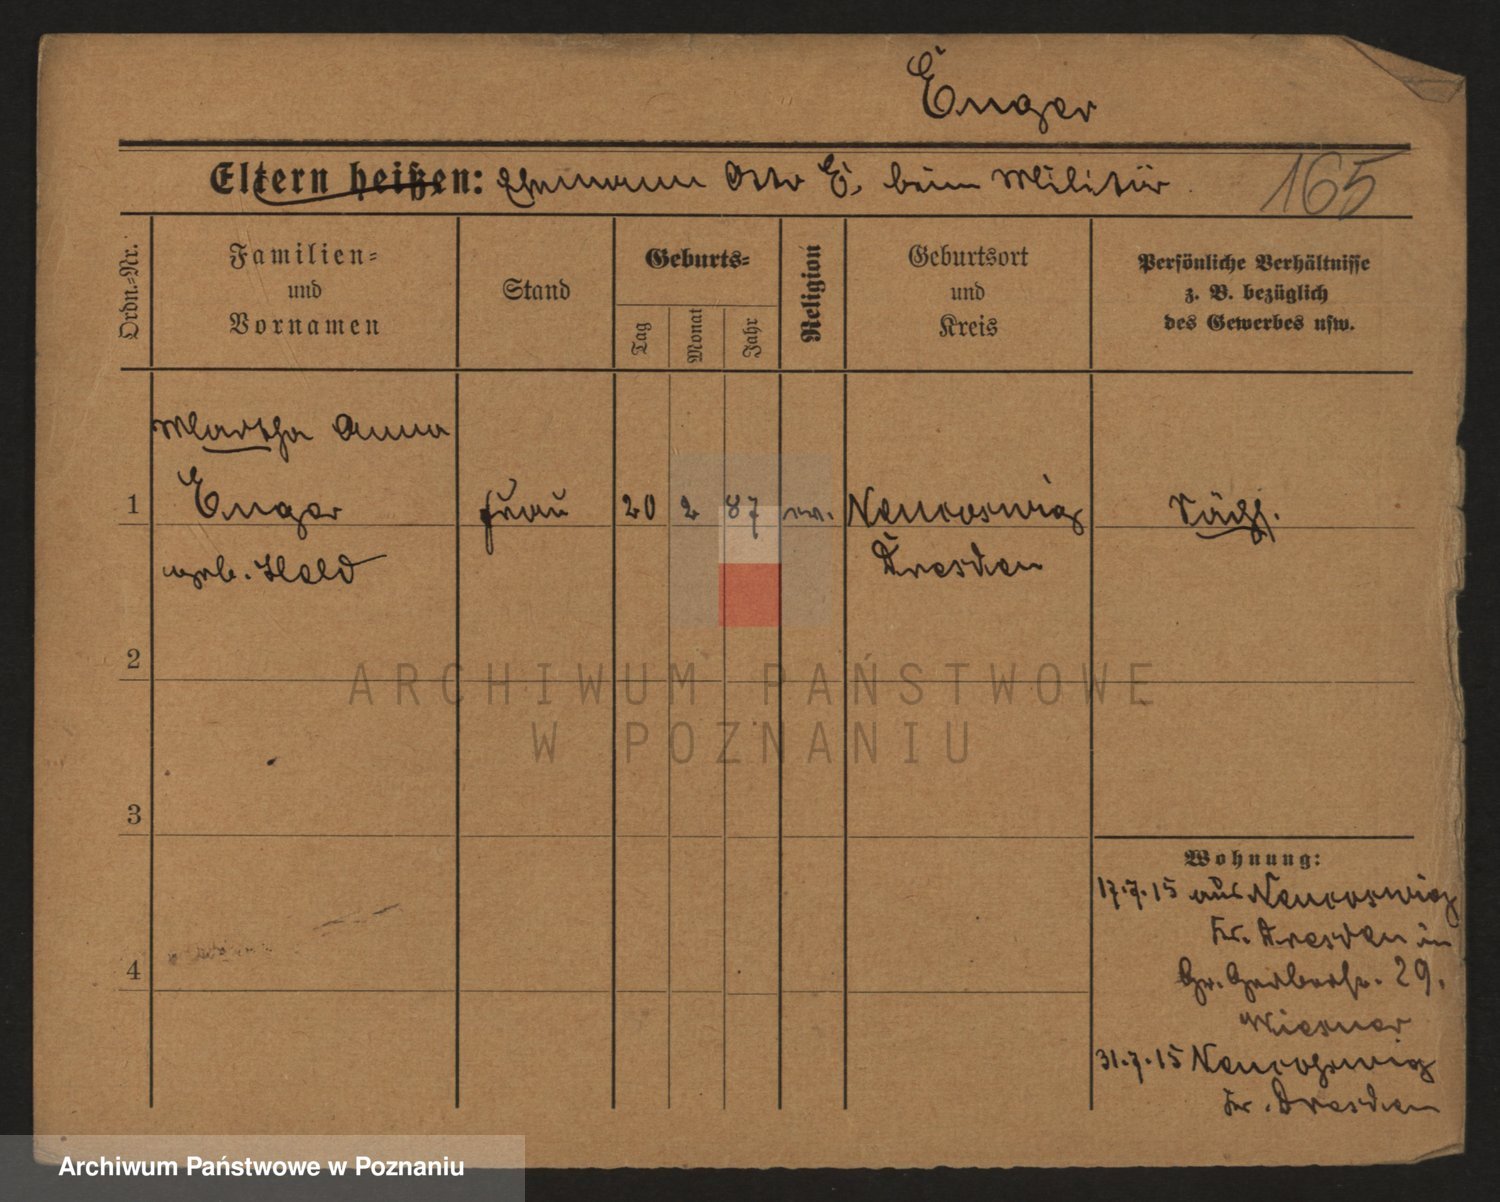 Enger
Eltern heißen: Ehemann Otto E. beim Militär
165
Ordn.-Nr.
Familien-
und
Vornamen
Stand
Geburts-
Tag
Monat
Jahr
Religion
Geburtsort
und
Kreis
Persönliche Verhältnisse
z. B. bezüglich
des Gewerbes usw.
Martha Anna
1 Enger Frau 20 2 87 ev. Neucoswig Sächs.
geb. Held Dresden
2
ARCHIWUM PAŃSTWOWE
W POZNANIU
3
Wohnung:
17.7.15 aus Neucoswig
Kr. Dresden in
Gr. Gerberstr. 29.
4
Wiesner
31.7.15 Neucoswig
Kr. Dresden
Archiwum Państwowe w Poznaniu